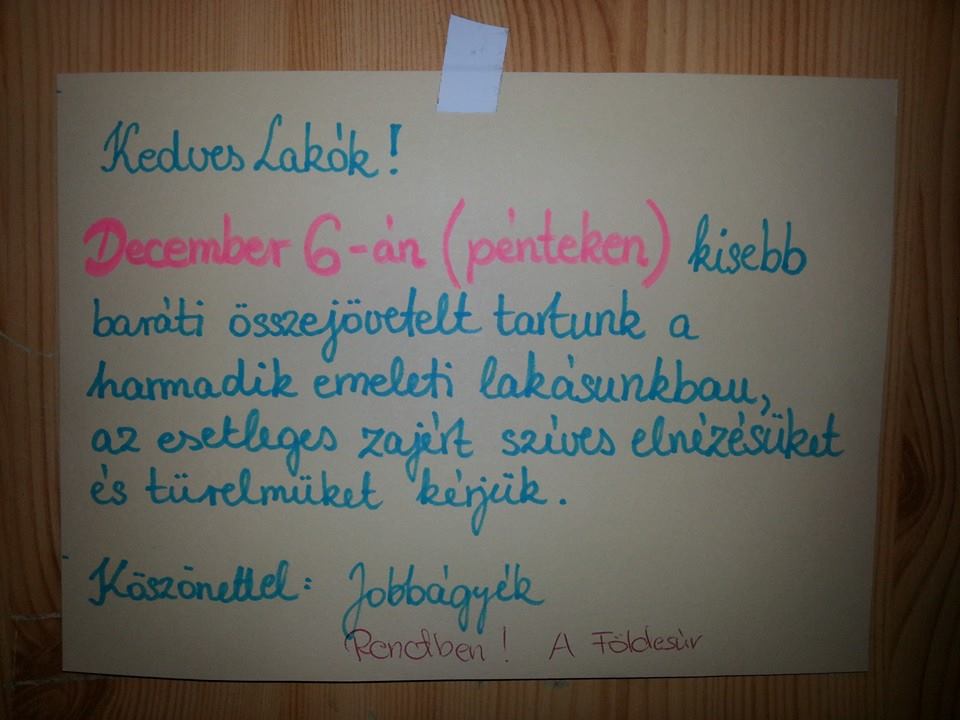 Kedves Lakók!
December 6-án (pénteken) kisebb
baráti összejövetelt tartunk a
harmadik emeleti lakásunkban,
az esetleges zajért szíves elnézésüket
és türelmüket kérjük.
Köszönettel: Jobbágyék
Rendben! A Földesúr